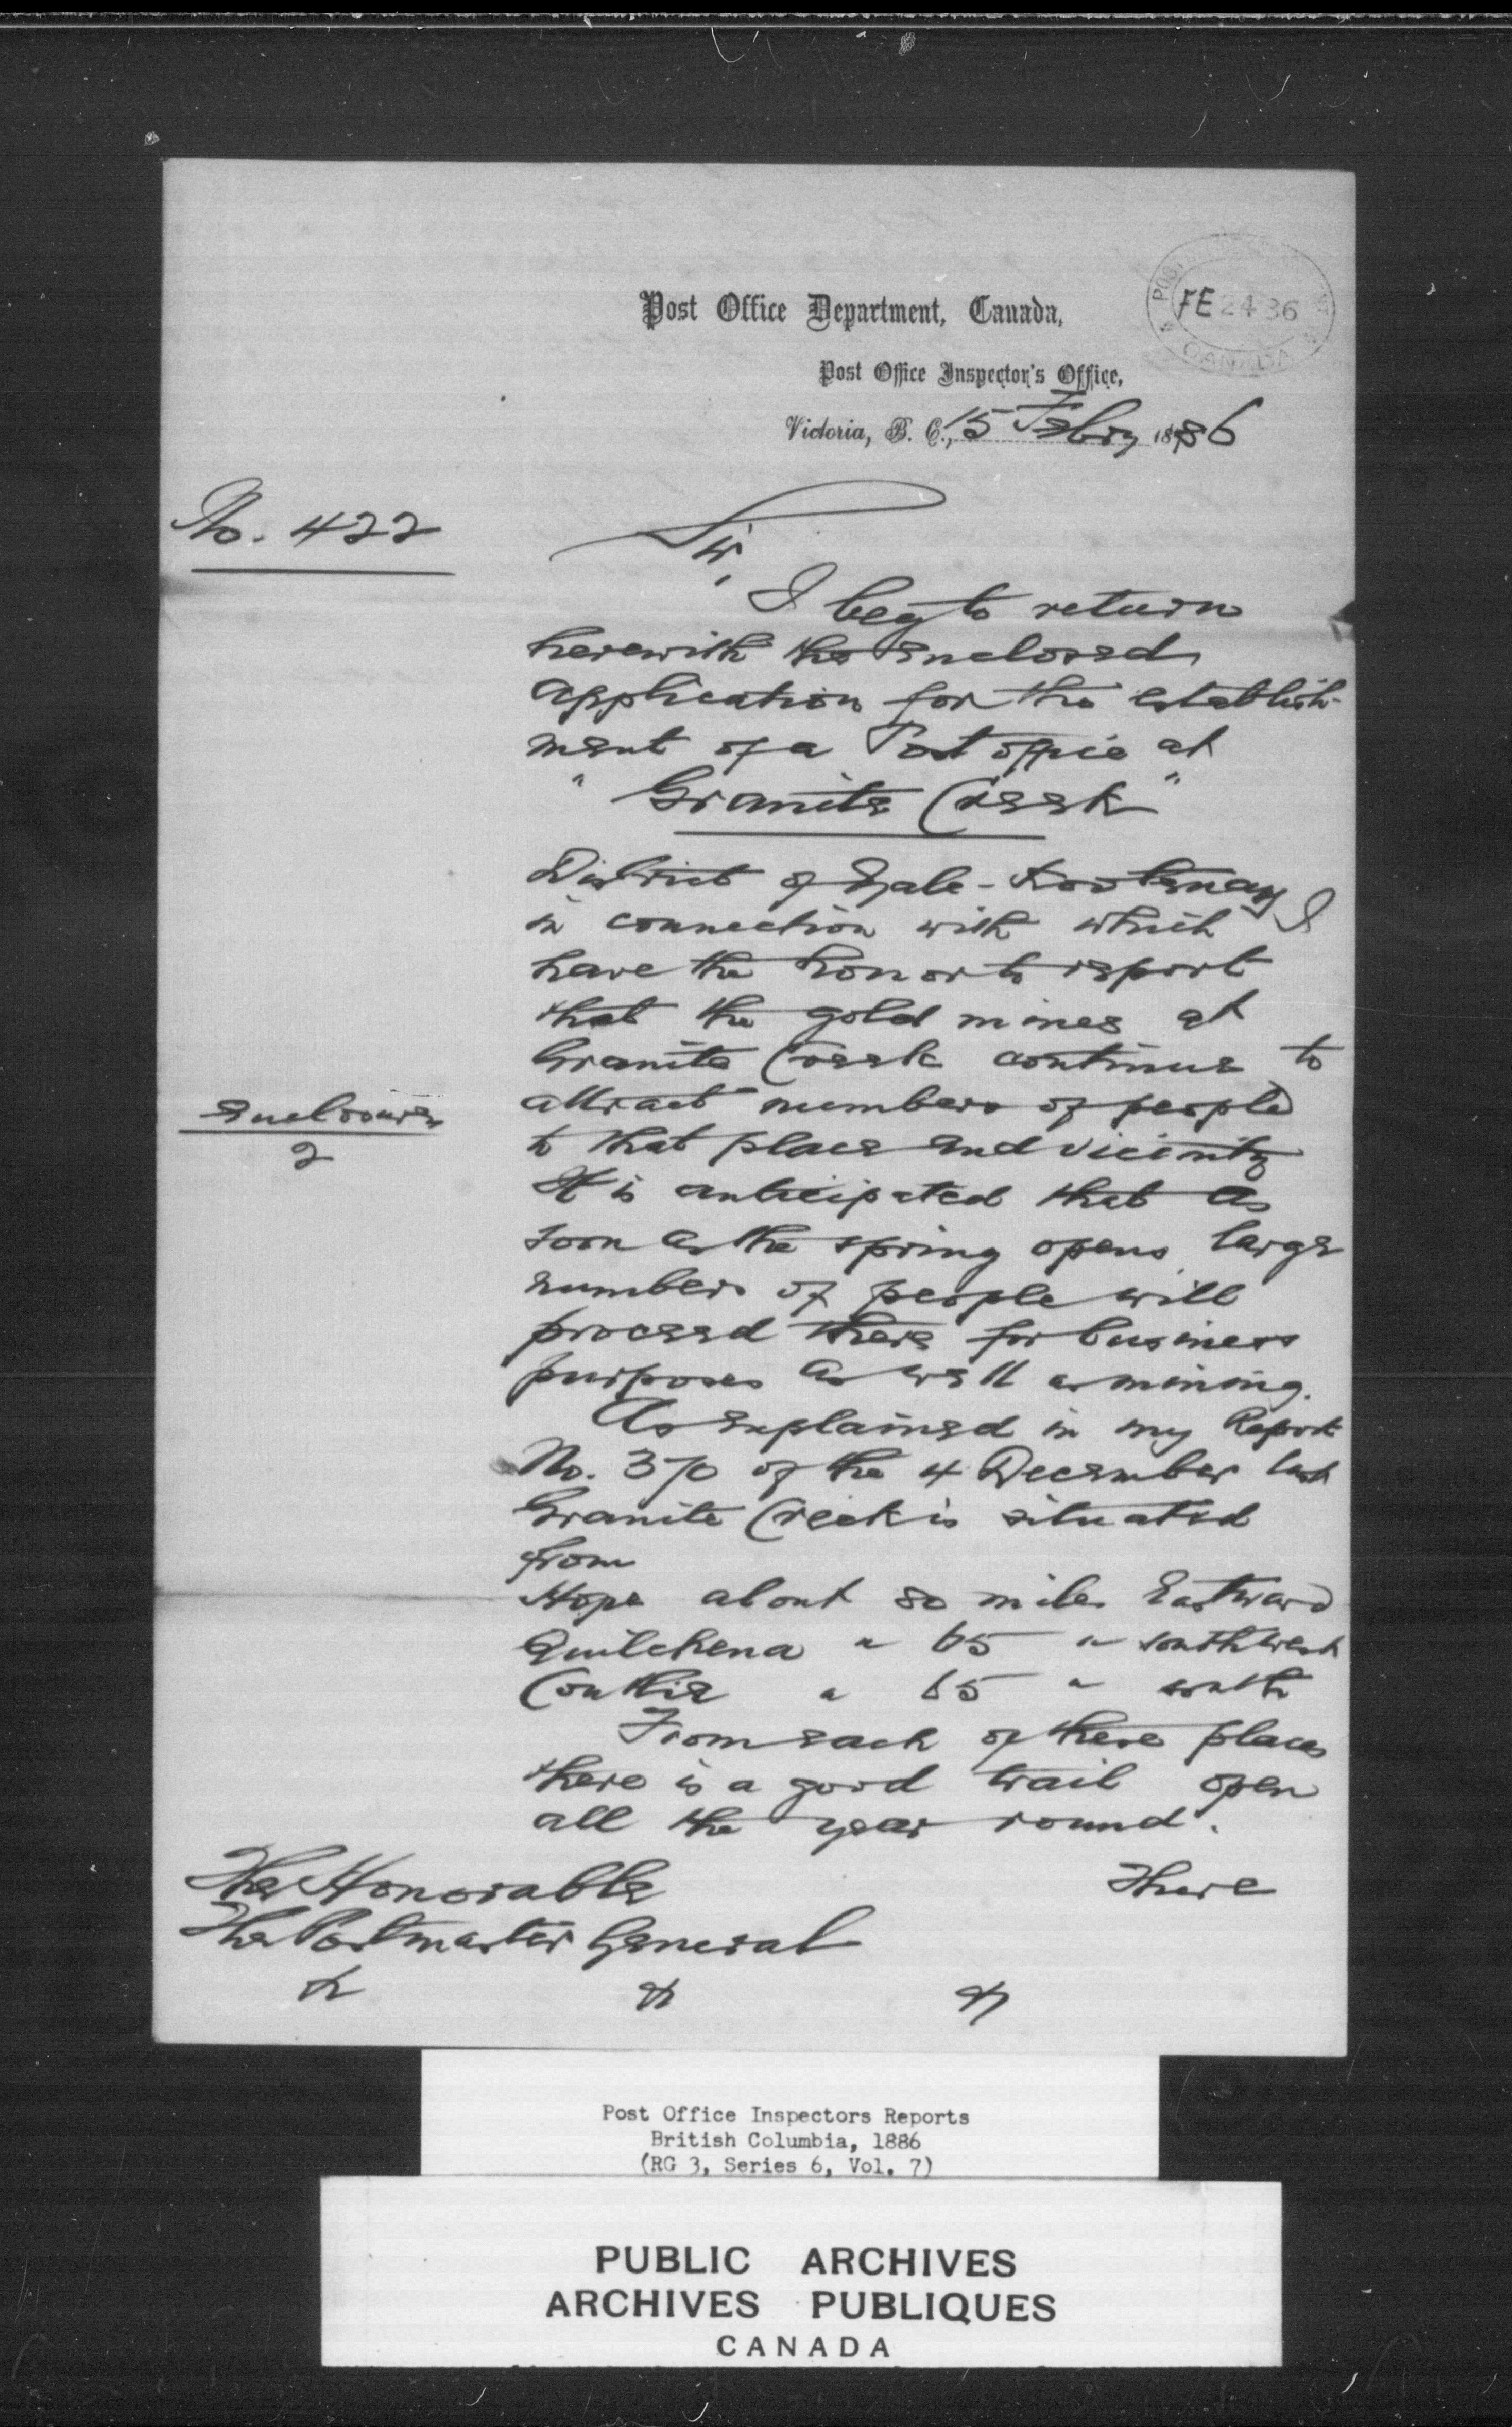 Post Office Department, Canada,
FE 24 86
CANADA
Post Office Inspector's Office,
Victoria, B. C., 15 Febry 1886
No. 422
Sir,
I beg to return
herewith the enclosed
application for the establish-
ment of a Post office at
"Granite Creek"
District of Yale-Kootenay I
in connection with which
have the honor to report
that the gold mines at
Granite Creek continue to
Enclosures
2
attract numbers of people
to that place and vicinity
It is anticipated that as
soon as the spring opens large
numbers of people will
proceed there for business
purposes as well as mining.
As explained in my Report
No. 370 of the 4 December last
Granite Creek is situated
from
Hope about 80 miles Eastward
Quilchena " 65 " southwest
Couttie " 65 " south
From each of these places
there is a good trail open
all the year round.
There
The Honorable
The Postmaster General
& & &
Post Office Inspectors Reports
British Columbia, 1886
(RG 3, Series 6, Vol. 7)
PUBLIC ARCHIVES
ARCHIVES PUBLIQUES
CANADA